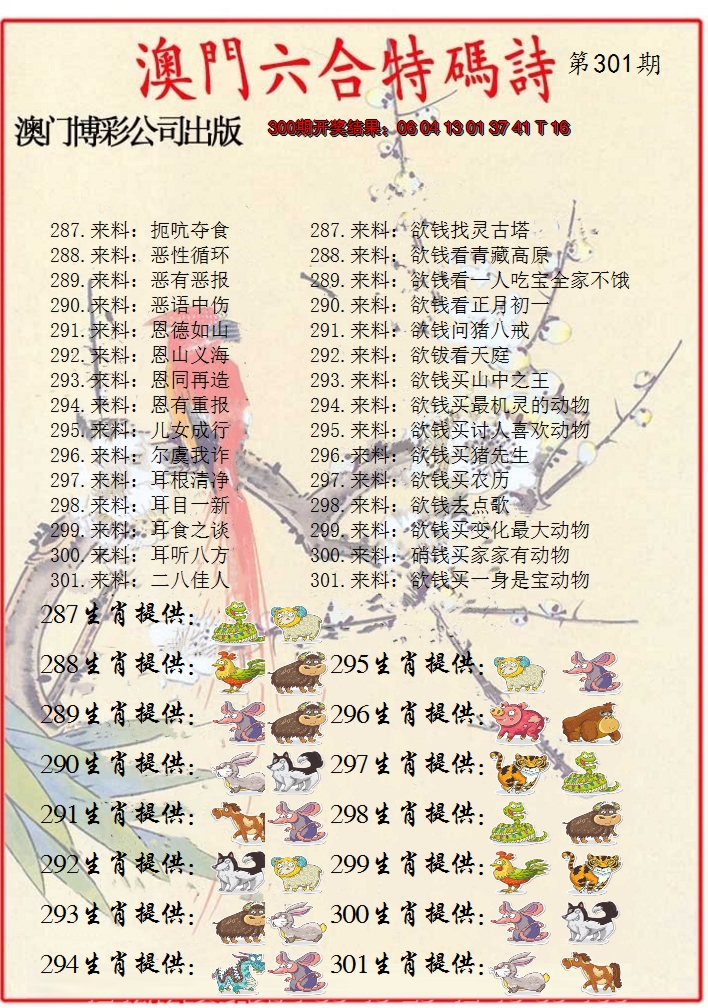 澳門六合特碼詩 第301期
澳门博彩公司出版 300期开奖结果：06 04 13 01 37 41 T 16
287.来料：扼吭夺食 287.来料：欲钱找灵古塔
288.来料：恶性循环 288.来料：欲钱看青藏高原
289.来料：恶有恶报 289.来料：欲钱看一人吃宝全家不饿
290.来料：恶语中伤 290.来料：欲钱看正月初一
291.来料：恩德如山 291.来料：欲钱问猪八戒
292.来料：恩山义海 292.来料：欲钹看天庭
293.来料：恩同再造 293.来料：欲钱买山中之王
294.来料：恩有重报 294.来料：欲钱买最机灵的动物
295.来料：儿女成行 295.来料：欲钱买讨人喜欢动物
296.来料：尔虞我诈 296.来料：欲钱买猪先生
297.来料：耳根清净 297.来料：欲钱买农历
298.来料：耳目一新 298.来料：欲钱去点歌
299.来料：耳食之谈 299.来料：欲钱买变化最大动物
300.来料：耳听八方 300.来料：硝钱买家家有动物
301.来料：二八佳人 301.来料：欲钱买一身是宝动物
287生肖提供：
288生肖提供： 295生肖提供：
289生肖提供： 296生肖提供：
290生肖提供： 297生肖提供：
291生肖提供： 298生肖提供：
292生肖提供： 299生肖提供：
293生肖提供： 300生肖提供：
294生肖提供： 301生肖提供：